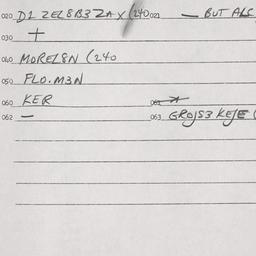 020 D1 ZEL8B3ZAX (240 021 — BUT ALS
030 +
040 MOREL8N (240
050 FLO.M3N
060 KER 061
062 — 063 GROJS3 KEJE (